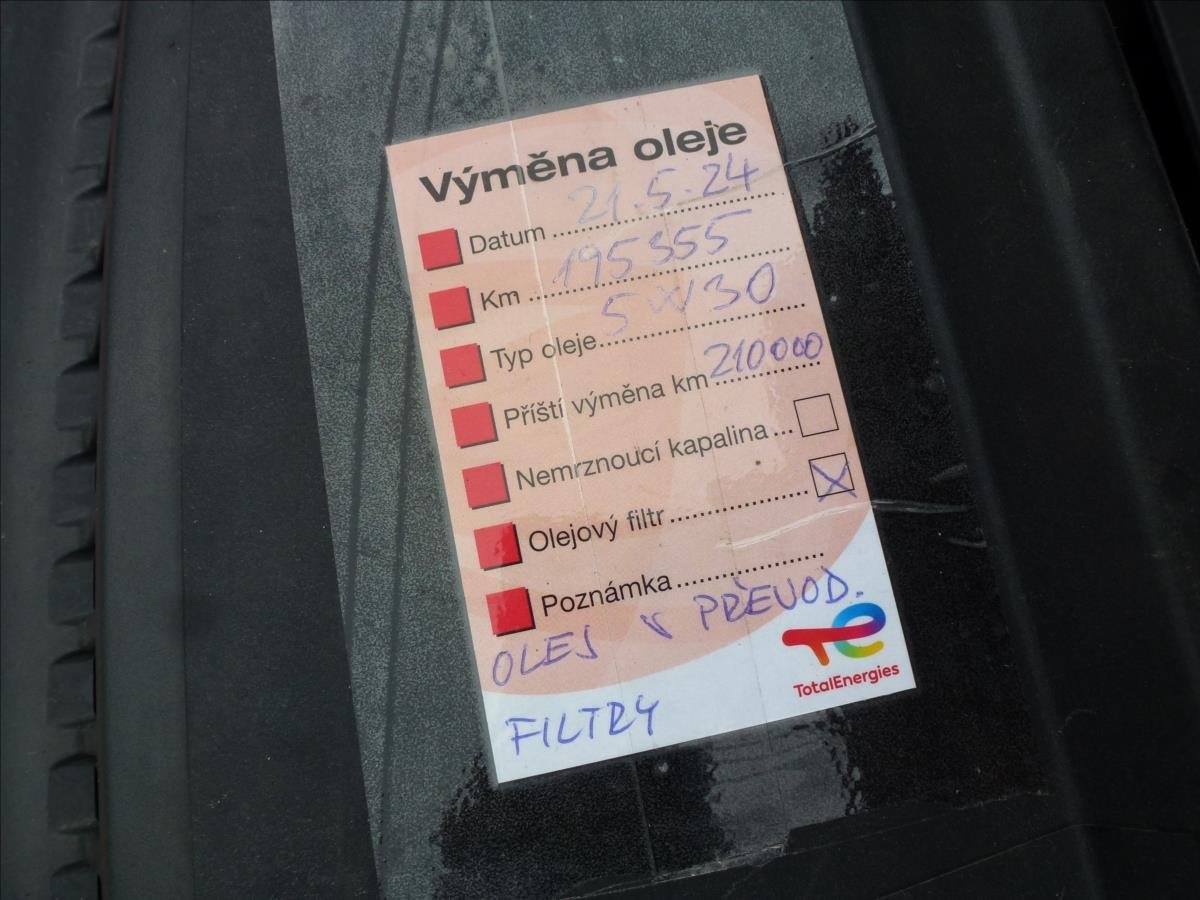 Výměna oleje
Datum ........ 21.5.24
Km ........ 195355
Typ oleje........ 5W30
Příští výměna km ........ 210000
Nemrznoucí kapalina ...
Olejový filtr ........ X
Poznámka ........
OLEJ V PŘEVOD.
FILTRY
TotalEnergies